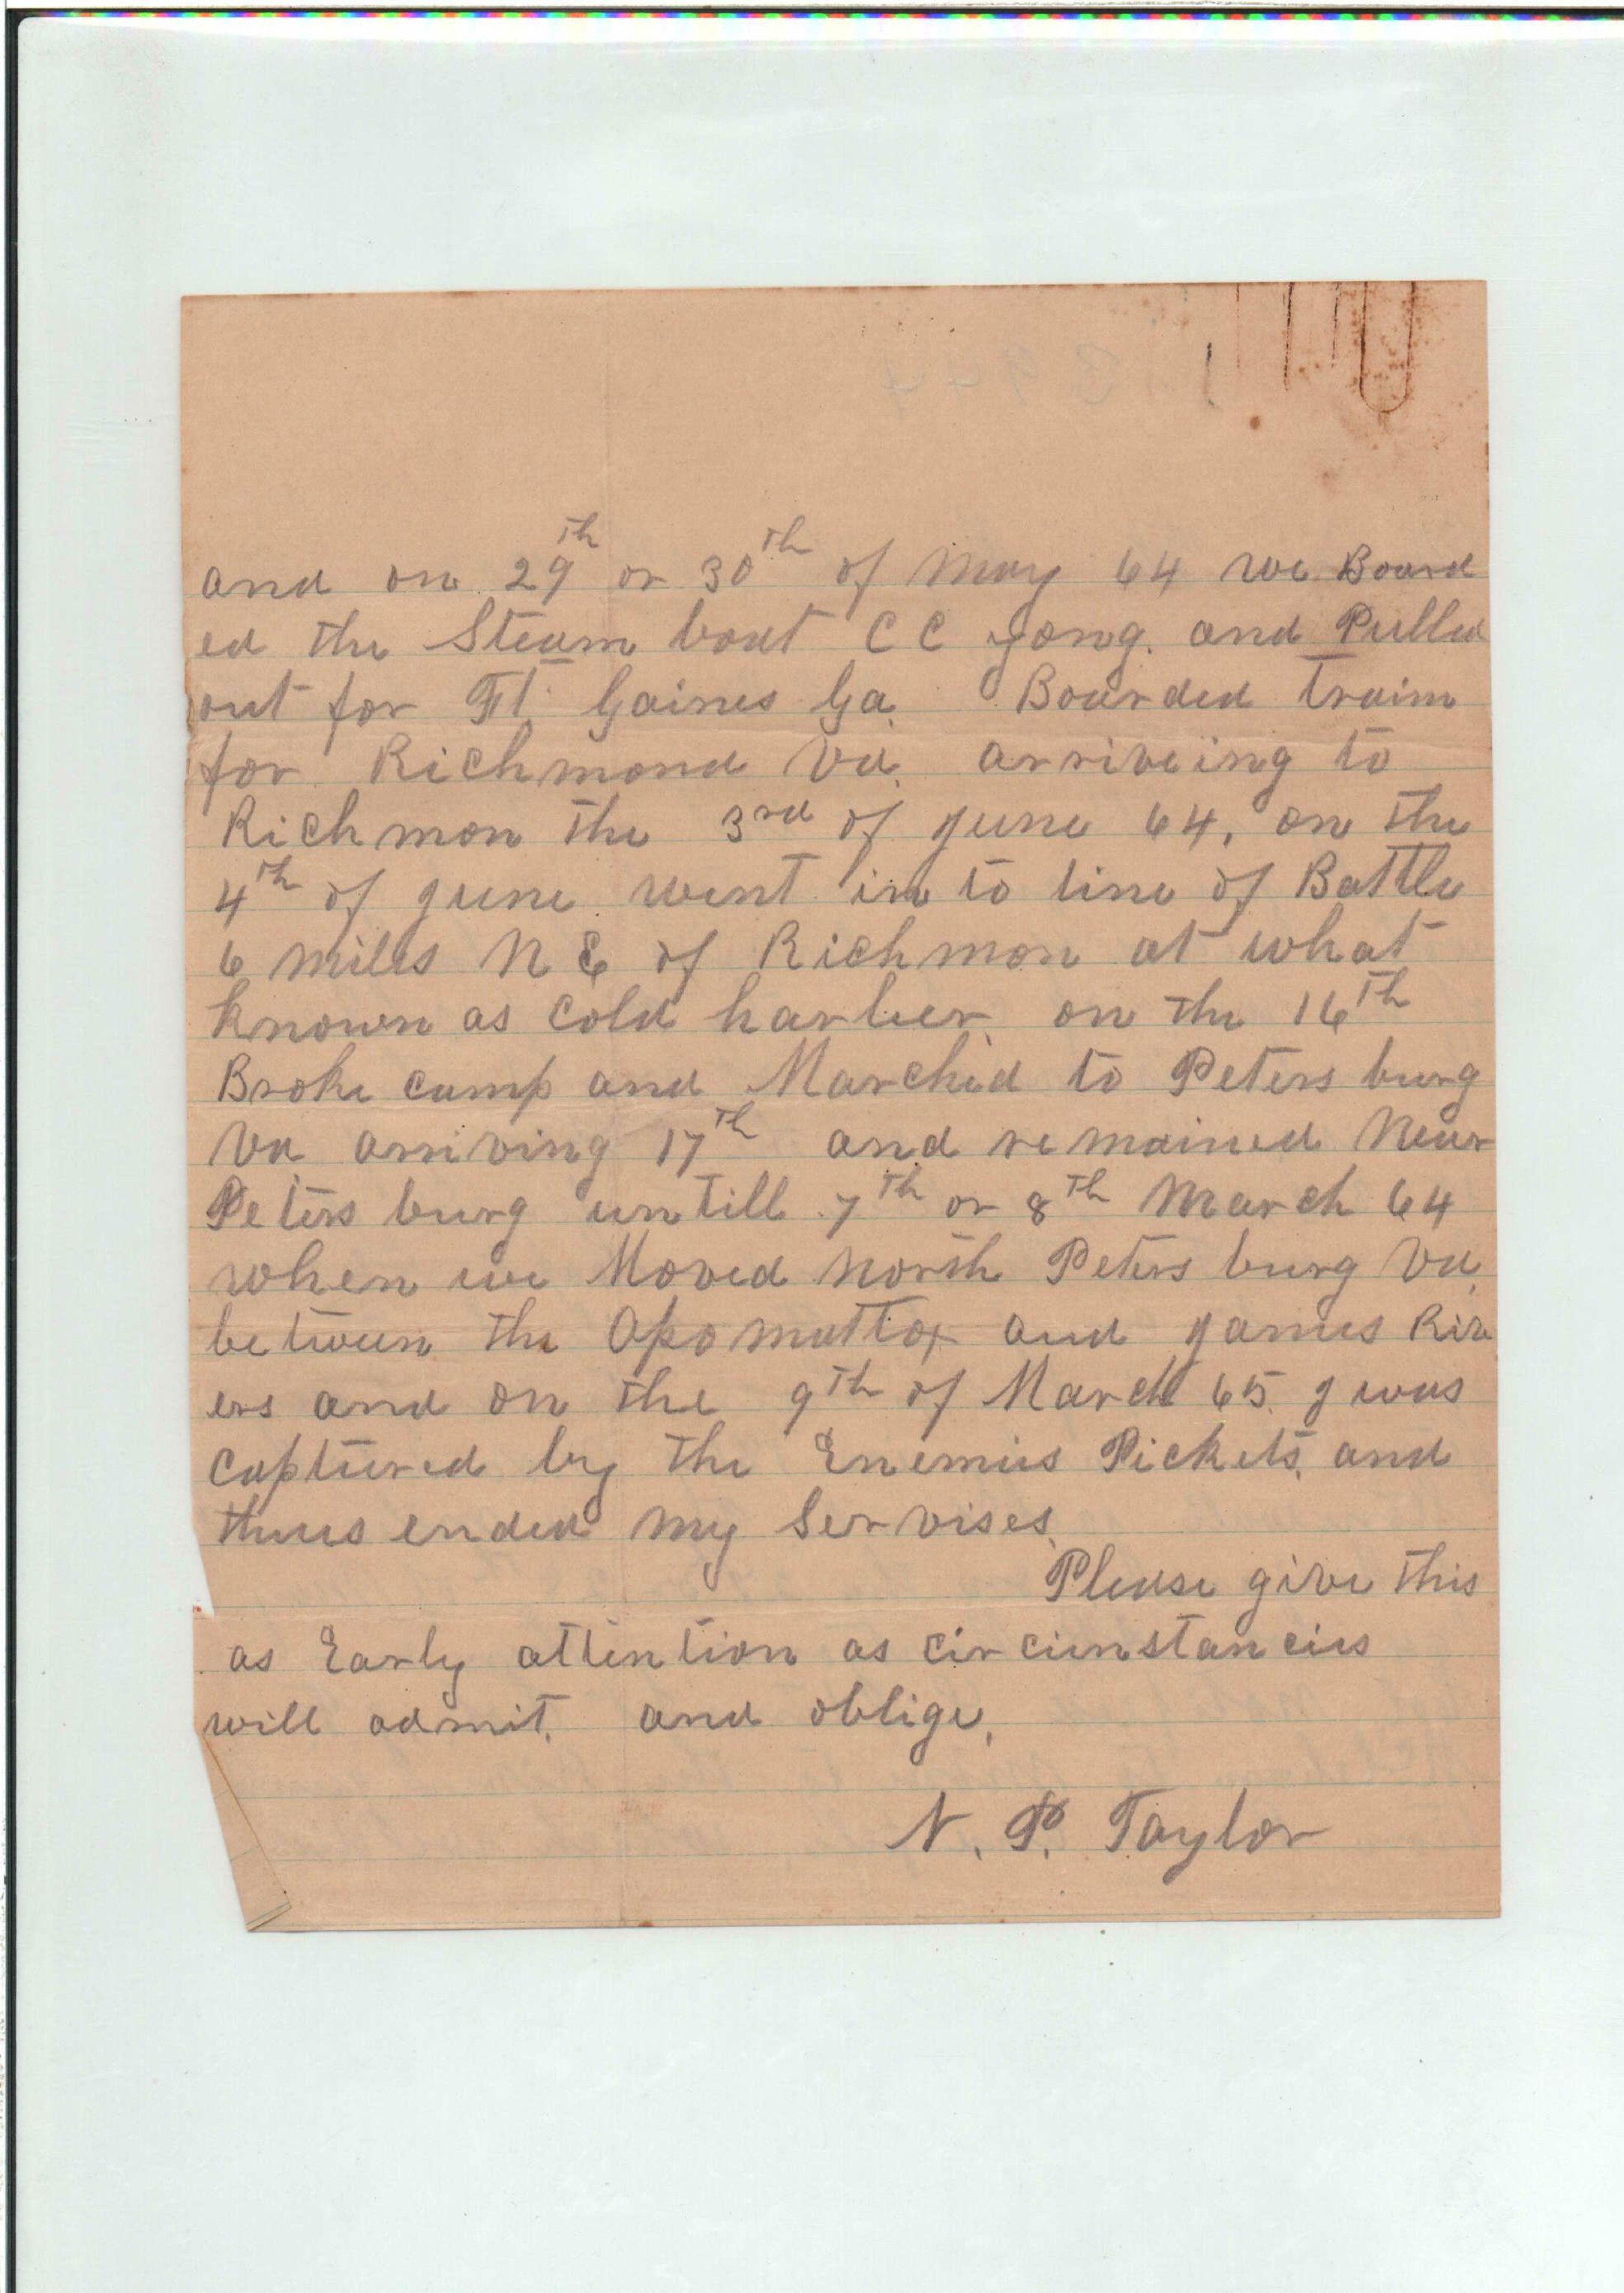 and on 29th or 30th of May 64 we Board
ed the Steam boat C C yong. and Pulled
out for Ft. Gaines Ga. Boarded train
for Richmond Va. arriveing to
Richmon the 3rd of june 64, on the
4th of june went in to line of Battle
6 miles N E of Richmon at what
known as Cold harber on the 16th
Broke camp and Marched to Peters burg
Va arriving 17th and remained Near
Peters burg untill 7th or 8th March 64
when we Moved North Peters burg Va.
between the Apomattox and james Riv
ers and on the 9th of March 65. I was
captured by the Enemies Pickets, and
thus ended my Servises.
Please give this
as Early attention as circumstancies
will admit. and oblige,
N. P. Taylor